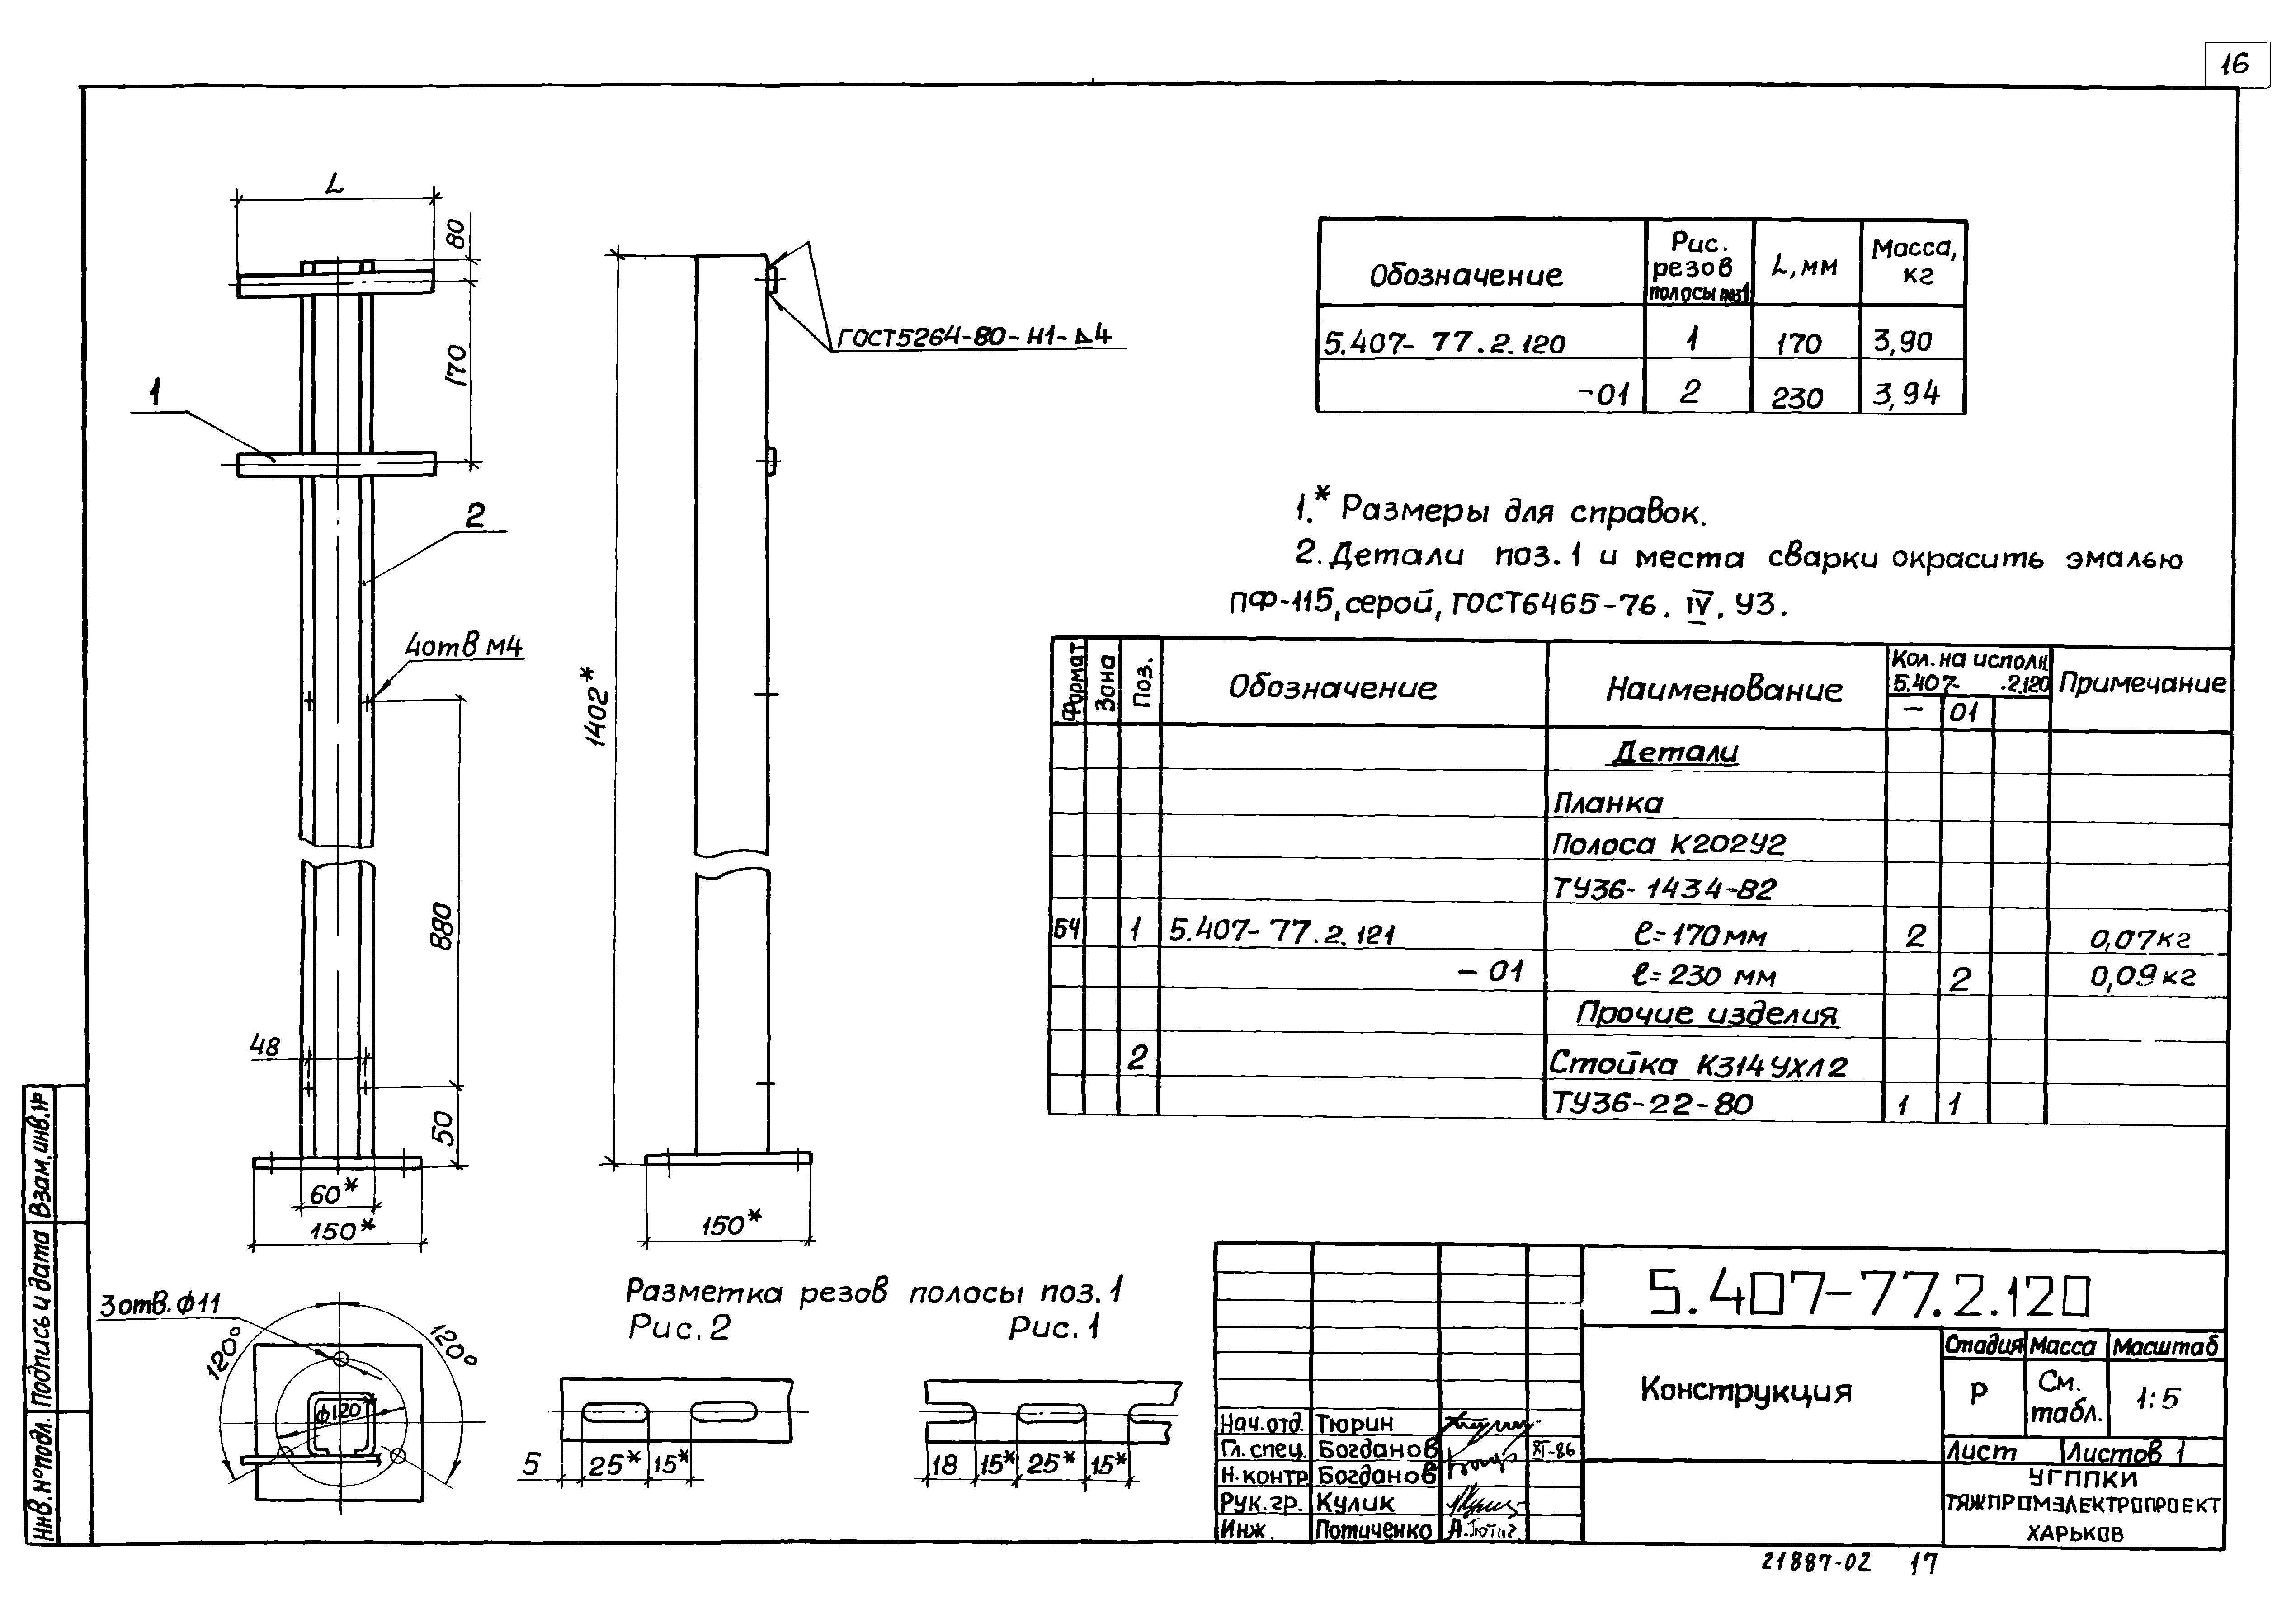 16
L
80
170
1
2
4отв М4
880
48
50
60*
150*
1402*
150*
ГОСТ5264-80-Н1-⊿4
Обозначение
Рис. резов полосы поз1
L, мм
Масса, кг
5.407-77.2.120 1 170 3,90
-01 2 230 3,94
1.* Размеры для справок.
2. Детали поз. 1 и места сварки окрасить эмалью
ПФ-115, серой, ГОСТ6465-76. IV. У3.
Формат
Зона
Поз.
Обозначение
Наименование
Кол. на исполн.
5.407- .2.120
- 01
Примечание
Детали
Планка
Полоса К202У2
ТУ36-1434-82
БЧ 1 5.407-77.2.121 ℓ=170мм 2 0,07кг
-01 ℓ=230 мм 2 0,09кг
Прочие изделия
2 Стойка К314УХЛ2
ТУ36-22-80 1 1
3отв. ф11
120°
120°
ф120*
Разметка резов полосы поз.1
Рис.2
Рис.1
5 25* 15*
18 15* 25* 15*
Инв. № подл.
Подпись и дата
Взам. инв. №
5.407-77.2.120
Конструкция
Стадия Масса Масштаб
Р См. табл. 1:5
Лист Листов 1
УГППКИ
ТЯЖПРОМЭЛЕКТРОПРОЕКТ
ХАРЬКОВ
Нач. отд. Тюрин
Гл. спец. Богданов XI-86
Н. контр. Богданов
Рук. гр. Кулик
Инж. Потиченко
21887-02 17